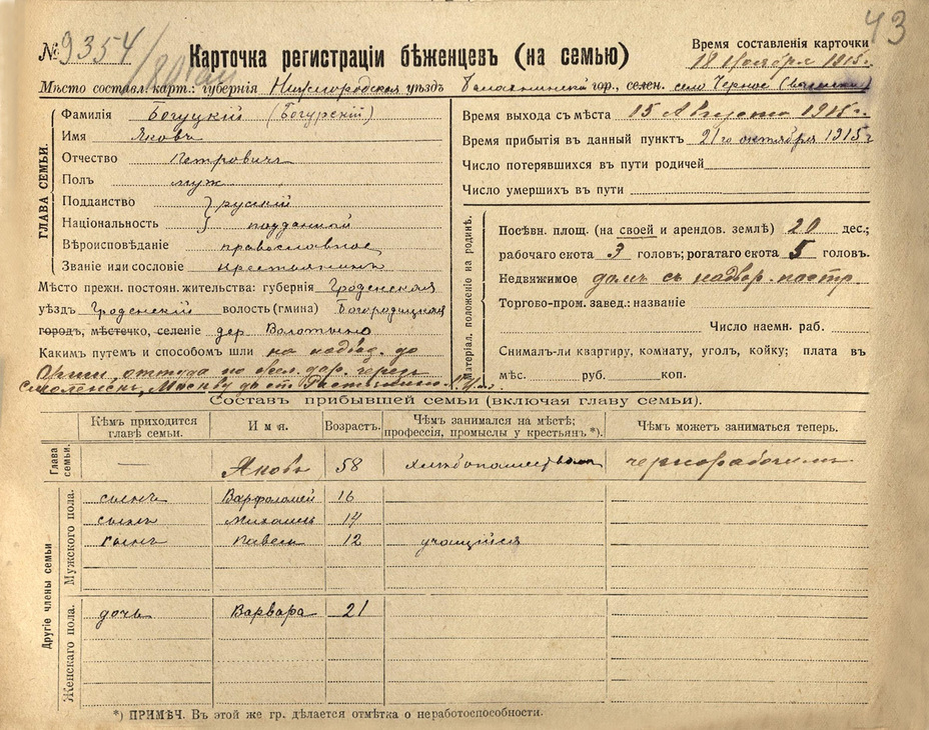 № 9354 43
Карточка регистраціи бѣженцевъ (на семью)
Время составленія карточки
18 Ноября 1915 г.
Мѣсто составл. карт.: губернія Нижегородская уѣздъ гор., селен. село Черное
ГЛАВА СЕМЬИ.
Фамилія Богуцкій (Богурскій)
Имя Яковъ
Отчество Петровичъ
Полъ муж
Подданство } русскій
Національность } подданный
Вѣроисповѣданіе православное
Званіе или сословіе крестьянинъ
Мѣсто прежн. постоян. жительства: губернія Гродненская
уѣздъ Гродненскій волость (гмина) Богородицкая
городъ, мѣстечко, селеніе дер. Волотыно
Какимъ путемъ и способомъ шли на подвод. до
Орши, оттуда по жел. дор. черезъ
Смоленскъ, Москву до ст.
Время выхода съ мѣста 15 Августа 1915 г.
Время прибытія въ данный пунктъ 21го октября 1915 г
Число потерявшихся въ пути родичей
Число умершихъ въ пути
Матеріал. положеніе на родинѣ.
Посѣвн. площ. (на своей и арендов. землѣ) 20 дес.;
рабочаго скота 3 головъ; рогатаго скота 5 головъ.
Недвижимое домъ съ надвор. постр
Торгово-пром. завед.: названіе
Число наемн. раб.
Снималъ-ли квартиру, комнату, уголъ, койку; плата въ
мѣс. руб. коп.
Составъ прибывшей семьи (включая главу семьи).
Кѣмъ приходится главѣ семьи. Имя. Возрастъ. Чѣмъ занимался на мѣстѣ; профессія, промыслы у крестьянъ *). Чѣмъ можетъ заниматься теперь.
Глава семьи. — Яковъ 58 хлебопашествомъ чернорабочимъ
Другіе члены семьи
Мужского пола.
сынъ Варфоломей 16
сынъ Михаилъ 14
сынъ Павелъ 12 учащійся
Женскаго пола.
дочь Варвара 21
*) ПРИМѢЧ. Въ этой же гр. дѣлается отмѣтка о неработоспособности.